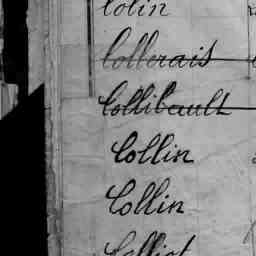 Colin
Collerais
Collibault
Collin
Collin
Colliot